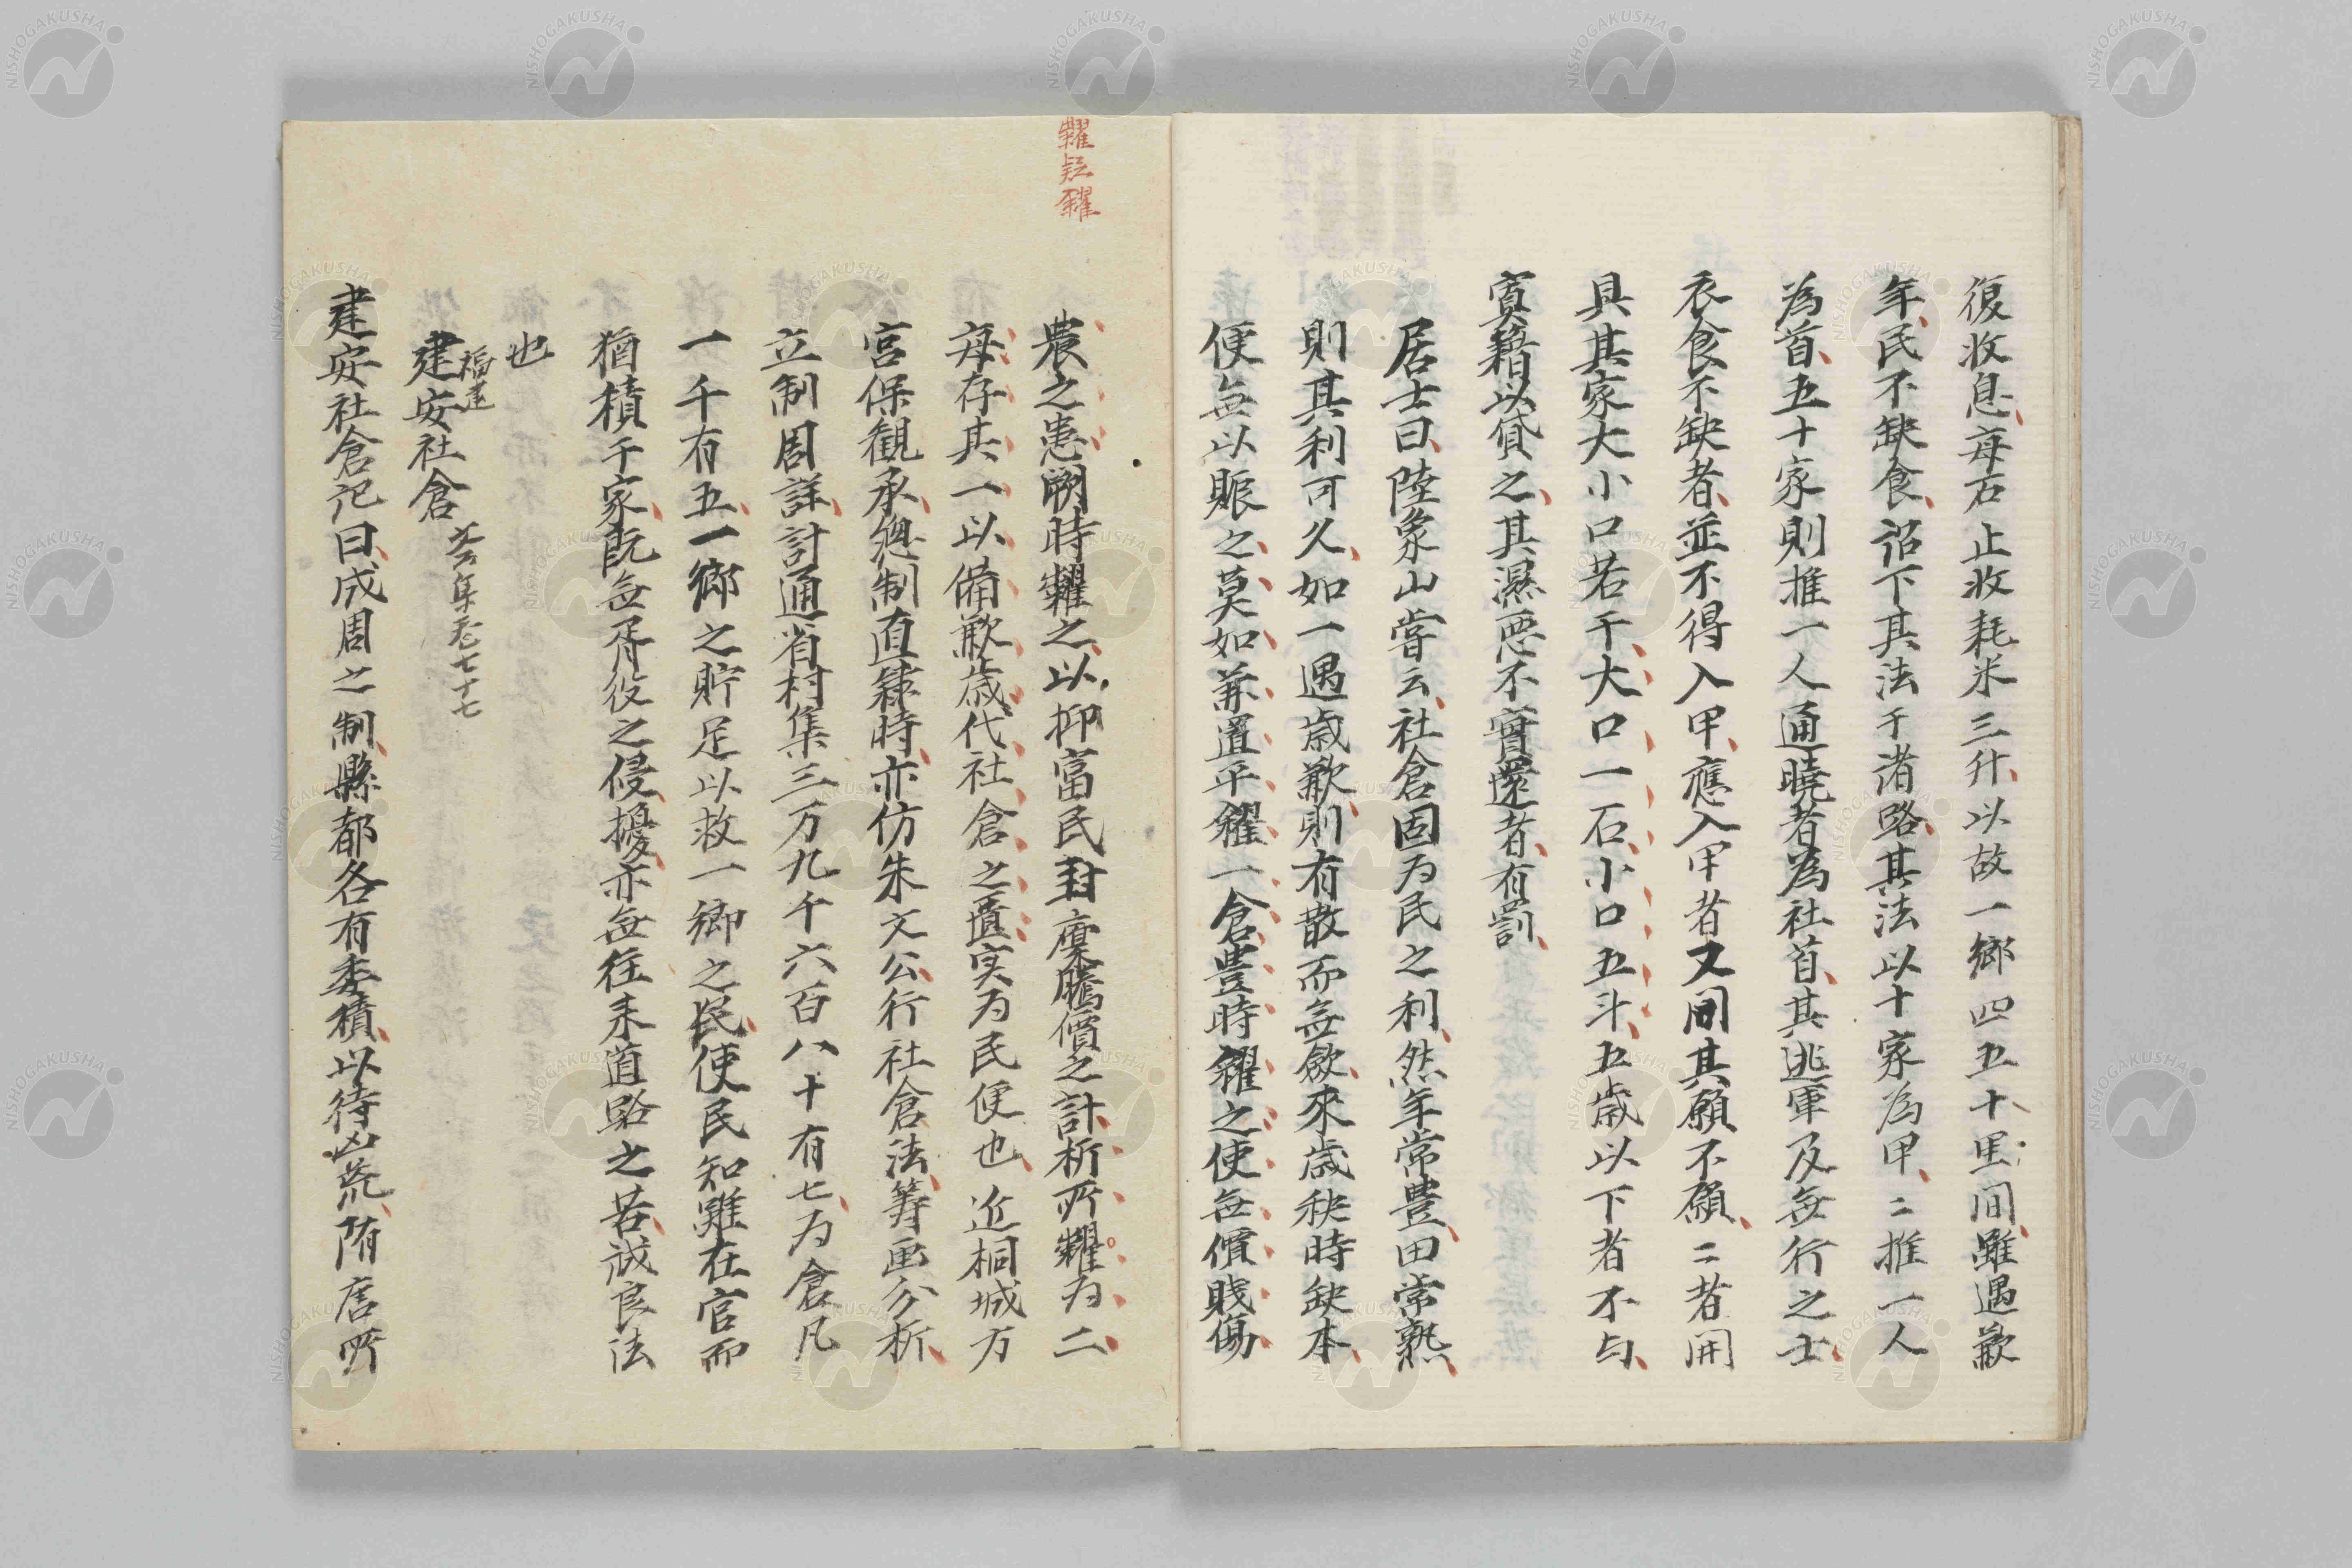 復收息每石止收耗米三升以故一鄉四五十里間雖遇歉
年民不缺食詔下其法于諸路其法以十家為甲〻推一人
為首五十家則推一人通曉者為社首其逃軍及無行之士
衣食不缺者並不得入甲應入甲者又間其願不願〻者開
具其家大小口若干大口一石小口五斗五歲以下者不与
寘籍以貸之其濕惡不實還者有罰
居士曰陸象山嘗云社倉固为民之利然年常豊田常熟
則其利可久如一遇歲歉則有散而無歛來歲秧時缺本
便無以賑之莫如兼置平糴一倉豊時糴之使無價賤傷
糶疑糴
農之患闕時糶之以抑富民封廩騰價之計析所糶为二
每存其一以備歉歳代社倉之匱实为民便也近桐城方
宮保観承總制直隸時亦仿朱文公行社倉法籌画分析
立制周詳計通省村集三万九千六百八十有七为倉凡
一千有五一鄉之貯足以救一鄉之民使民知雖在官而
猶積于家既無胥役之侵擾亦無往来道路之苦誠良法
也
福建
建安社倉 文集卷七十七
建安社倉記曰成周之制縣都各有委積以待凶荒隋唐所